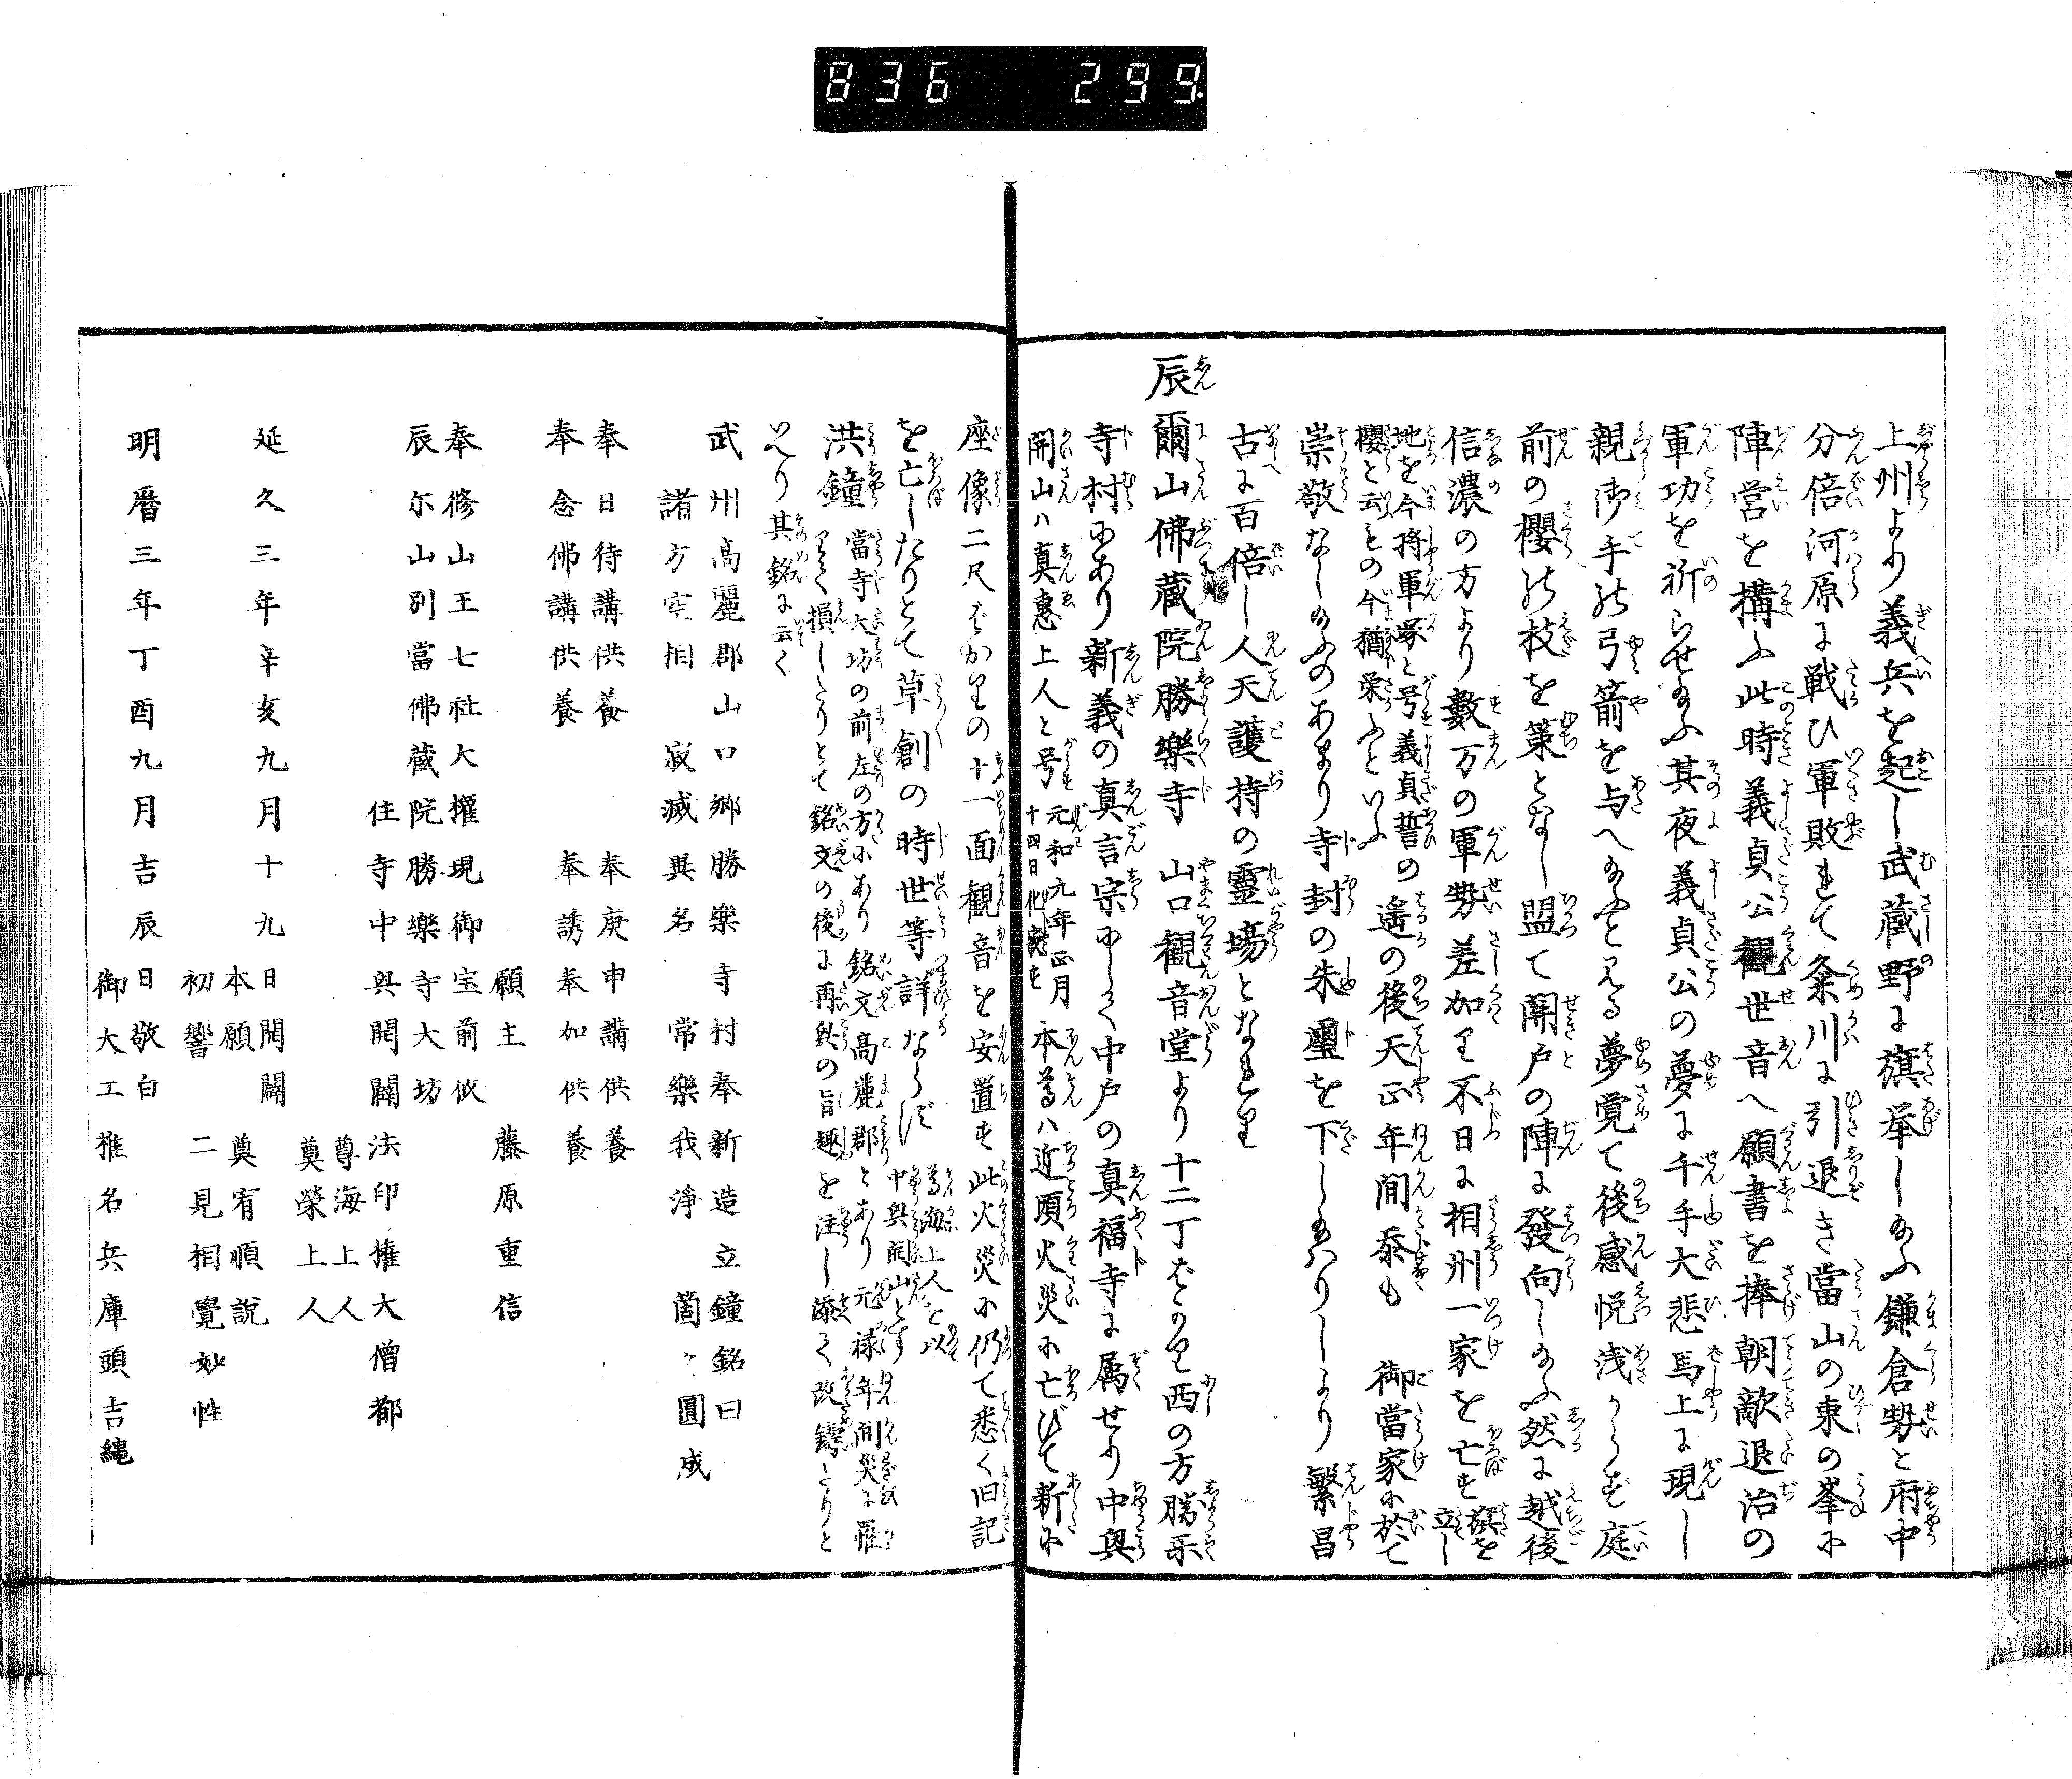 836 299
上州より義兵を起し武蔵野に旗挙し給ふ鎌倉勢と府中
分倍河原に戦ひ軍敗れて粂川に引退き當山の東の峯に
陣営を構ふ此時義貞公観世音へ願書を捧朝敵退治の
軍功を祈らせ給ふ其夜義貞公の夢に千手大悲馬上に現し
親御手の弓箭を与へ給ふと見る夢覚て後感悦浅からず庭
前の櫻の枝を策となし盟て関戸の陣に發向し給ふ然に越後
信濃の方より数万の軍勢差加り不日に相州一家を亡す旗を立し
地を今将軍塚と号義貞誓の
櫻と云もの今猶栄ふといふ
遙の後天正年間忝も 御當家に於て
崇敬なし給ふのあまり寺封の朱璽を下し給はりしより繁昌
古に百倍し人天護持の靈場となれり
辰爾山佛蔵院勝樂寺 山口観音堂より十二丁ばかり西の方勝楽
寺村にあり新義の真言宗にして中戸の真福寺に属せり中興
開山ハ真惠上人と号元和九年正月十四日化寂す本尊ハ近頃火災に亡びて新に
座像二尺ばかりの十一面観音を安置す此火災に仍て悉く旧記
を亡したりとて草創の時世等詳ならず尊海上人を以中興開山とす
洪鐘 當寺大坊の前左の方にあり銘文高麗郡とあり元禄年間災に罹
りて損したりとて銘文の後に再興の旨趣を注し添て改鑄たりと
いへり其銘に云く
武州高麗郡山口郷勝樂寺村奉新造立鐘銘曰
諸方空相 寂滅異名 常樂我淨 箇々圓成
奉日待講供養 奉庚申講供養
奉念佛講供養 奉誘奉加供養
願主 藤原重信
奉修山王七社大權現御宝前似
辰尓山別當佛蔵院勝樂寺大坊
住寺中興開闢 法印權大僧都
尊海上人
奠榮上人
延久三年辛亥九月十九日開闢
本願 奠宥順説
初響 二見相覺妙性
明暦三年丁酉九月吉辰日敬白
御大工 推名兵庫頭吉縄